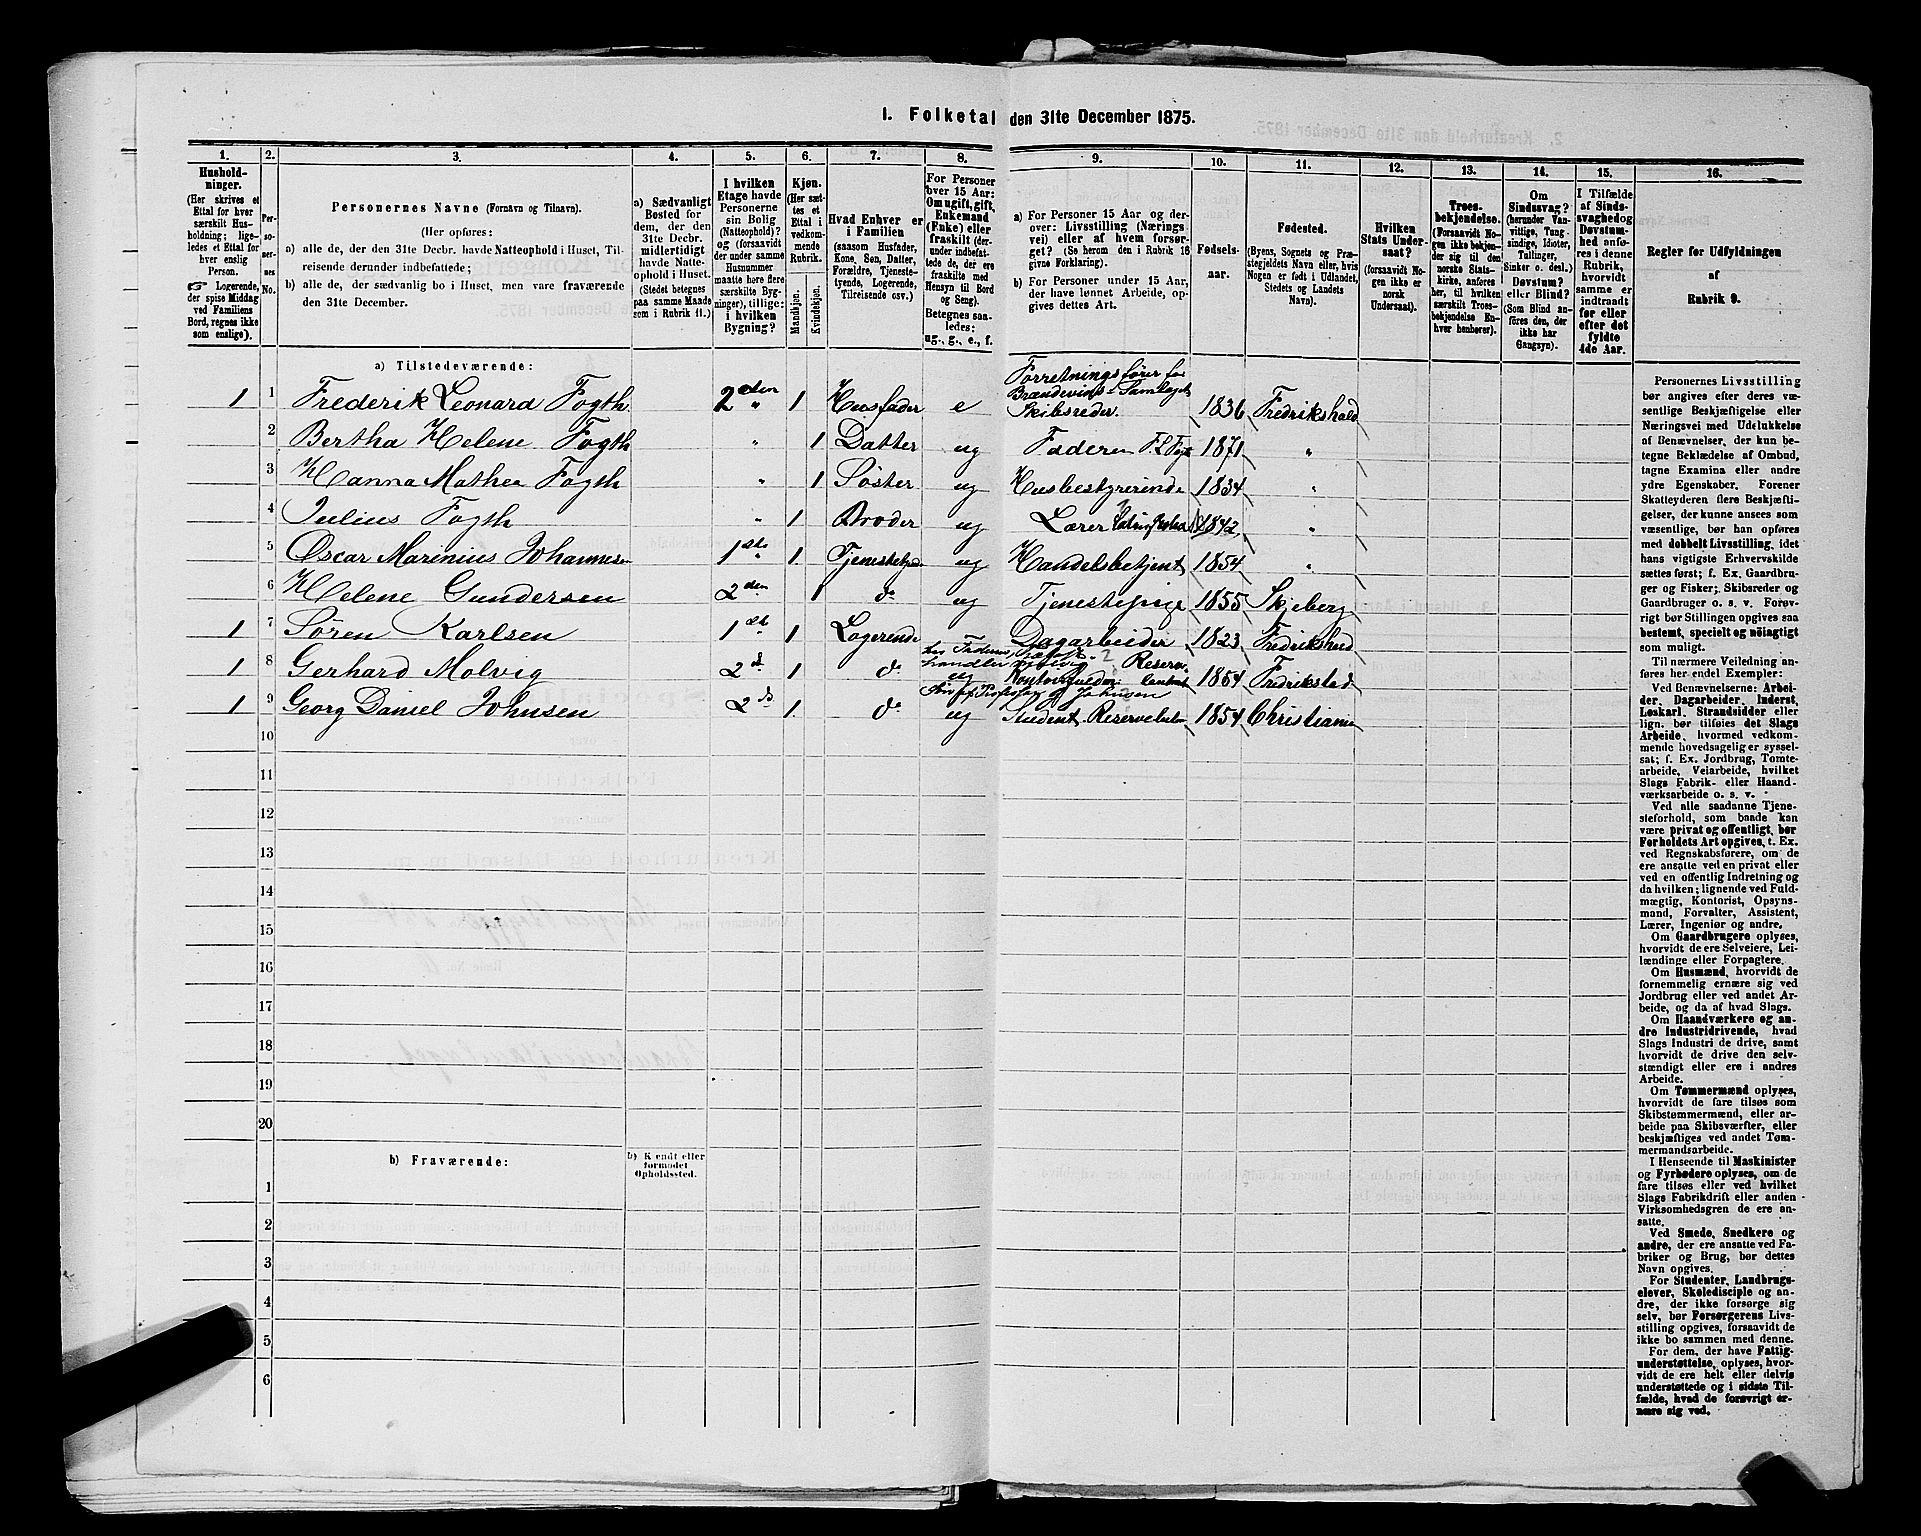 1. Folketal den 31te December 1875.
1.
2.
3.
4.
5.
6.
7.
8.
9.
10.
11.
12.
13.
14.
15.
16.
Hushold-
ninger.
(Her skrives et
Ettal for hver
særskilt Hus-
holdning; lige-
ledes et Ettal for
hver enslig
Person.
☞ Logerende,
der spise Middag
ved Familiens
Bord, regnes ikke
som enslige).
Per-
so-
ner-
nes
No.
Personernes Navne (Fornavn og Tilnavn).
(Her opføres:
a) alle de, der den 31te Decbr. havde Natteophold i Huset, Til-
reisende derunder indbefattede;
b) alle de, der sædvanlig bo i Huset, men vare fraværende
den 31te December.
a) Sædvanligt
Bosted for
dem, der den
31te Decbr.
midlertidigt
havde Natte-
ophold i Huset.
(Stedet betegnes
paa samme Maade
som i Rubrik 11.)
I hvilken
Etage havde
Personerne
sin Bolig
(Natteophold)?
og (forsaavidt
der under samme
Husnummer
maatte høre flere
særskilte Byg-
ninger), tillige:
i hvilken
Bygning?
Kjøn.
(Her sæt-
tes et
Ettal i
vedkom-
mende
Rubrik.
Mandkjøn.
Kvindekjøn.
Hvad Enhver er
i Familien
(saasom Husfader,
Kone, Søn, Datter,
Forældre, Tjeneste-
tyende, Logerende,
Tilreisende osv.)
For Personer
over 15 Aar:
Om ugift, gift,
Enkemand
(Enke) eller
fraskilt (der-
under indbefat-
tede de, der ere
fraskilte med
Hensyn til Bord
og Seng).
Betegnes saa-
ledes:
ug., g., e., f.
a) For Personer 15 Aar og der-
over: Livsstilling (Nærings
vei) eller af hvem forsør-
get? (Se herom den i Rubrik 16
givne Forklaring).
b) For Personer under 15 Aar,
der have lønnet Arbeide, op-
gives dettes Art.
Fødsels-
aar.
Fødested.
(Byens, Sognets og Præ-
stegjeldets Navn eller, hvis
Nogen er født i Udlandet,
Stedets og Landets
Navn).
Hvilken
Stats Under-
saat?
(forsaavidt No-
gen ikke er
norsk
Undersaat).
Troes-
bekjendelse.
(Forsaavidt No-
gen ikke bekjen-
der sig til den
norske Stats-
kirke, anføres
her, til hvilken
særskilt Troes-
bekjendelse En-
hver henhører).
Om
Sindssvag?
(herunder Van-
vittige, Tung-
sindige, Idioter,
Tullinger,
Sinker o. desl.)
Døvstum?
eller Blind?
(Som Blind an-
føres den, der
ikke har
Gangsyn).
I Tilfælde
af Sinds-
svaghed og
Døvstum-
hed anfø-
res i denne
Rubrik,
hvorvidt
samme er
indtraadt
før eller
efter det
fyldte
4de Aar.
Regler for Udfyldningen
af
Rubrik 9.
a) Tilstedeværende:
1 1 Frederik Leonard Fogth 2den " 1 Husfader e Forretningsfører for Brændevins-Samlaget Skibsreder. 1836 Fredrikshald
2 Bertha Helene Fogth " 1 Datter ug Faderen F. L. 1871 "
3 Hanna Mathea Fogth " 1 Søster ug Husbestyrerinde 1834 "
4 Julius Fogth " 1 Broder ug Lærer 1842 "
5 Oscar Marinius Johannesen 1ste " 1 ug Handelsbetjent 1854 "
6 Helene Gundersen 2den 1 do ug Tjenestepige 1855 Skjeberg
1 7 Sören Karlsen 1ste 1 Logerende Dagarbeider 1823 Fredrikshald
1 8 Gerhard Molvig 2d 1 do ug 1854 Fredriksted
1 9 Georg Daniel Johnsen 2d 1 do ug Student 1854 Christiania
10
11
12
13
14
15
16
17
18
19
20
b) Fraværende:
b) Kjendt eller
formodet
Opholdssted.
1
2
3
4
5
6
Personernes Livsstilling
bør angives efter deres væ-
sentlige Beskjæftigelse eller
Næringsvei med Udelukkelse
af Benævnelser, der kun be-
tegne Beklædelse af Ombud,
tagne Examina eller andre
ydre Egenskaber. Forener
Skatteyderen flere Beskjæfti-
gelser, der kunne ansees som
væsentlige, bør han opføres
med dobbelt Livsstilling, idet
hans vigtigste Erhvervskilde
sættes først; f. Ex. Gaardbru-
ger og Fisker; Skibsreder og
Gaardbruger o. s. v. Forøv-
rigt bør Stillingen opgives saa
bestemt, specielt og nøiagtigt
som muligt.
Til nærmere Veiledning an-
føres her endel Exempler:
Ved Benævnelserne: Arbei-
der, Dagarbeider, Inderst,
Løskarl, Strandsidder eller
lign. bør tilføies det Slags
Arbeide, hvormed vedkom-
mende hovedsagelig er syssel-
sat; f. Ex. Jordbrug, Tomte-
arbeide, Veiarbeide, hvilket
Slags Fabrik- eller Haand-
værksarbeide o. s. v.
Ved alle saadanne Tjene-
steforhold, som baade kan
være privat og offentligt, bør
Forholdets Art opgives, t. Ex.
ved Regnskabsførere, om de
ere ansatte ved en privat eller
ved en offentlig Indretning og
da hvilken; lignende ved Fuld-
mægtig, Kontorist, Opsyns-
mand, Forvalter, Assistent,
Lærer, Ingeniør og andre.
Om Gaardbrugere oplyses,
hvorvidt de ere Selveiere, Lei-
lændinge eller Forpagtere.
Om Husmænd, hvorvidt de
fornemmelig ernære sig ved
Jordbrug eller ved andet Ar-
beide, og da af hvad Slags.
Om Haandværkere og an-
dre Industridrivende, hvad
Slags Industri de drive, samt
hvorvidt de drive den selv-
stændigt eller ere i andres
Arbeide.
Om Tømmermænd oplyses,
hvorvidt de fare tilsøs som
Skibstømmermænd, eller ar-
beide paa Skibsværfter, eller
beskjæftiges ved andet Tøm-
mermandsarbeide.
I Henseende til Maskinister
og Fyrbødere oplyses, om de
fare tilsøs eller ved hvilket
Slags Fabrikdrift eller anden
Virksomhedsgren de ere an-
satte.
Ved Smede, Snedkere og
andre, der ere ansatte ved Fa-
briker og Brug, bør dettes
Navn opgives.
For Studenter, Landbrugs-
elever, Skoledisciple og an-
dre, der ikke forsørge sig
selv, bør Forsørgerens Livs-
stilling opgives, forsaavidt de
ikke bo sammen med denne.
For dem, der have Fattig-
understøttelse, oplyses, hvor-
vidt de ere helt eller delvis
understøttede og i sidste Til-
fælde, hvad de forøvrigt er-
nære sig ved.